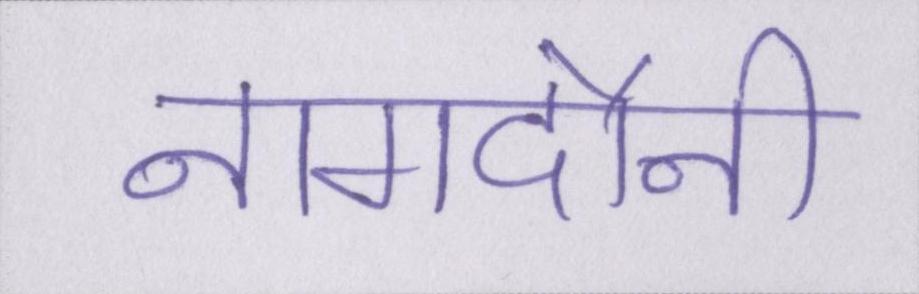 नागदौनी